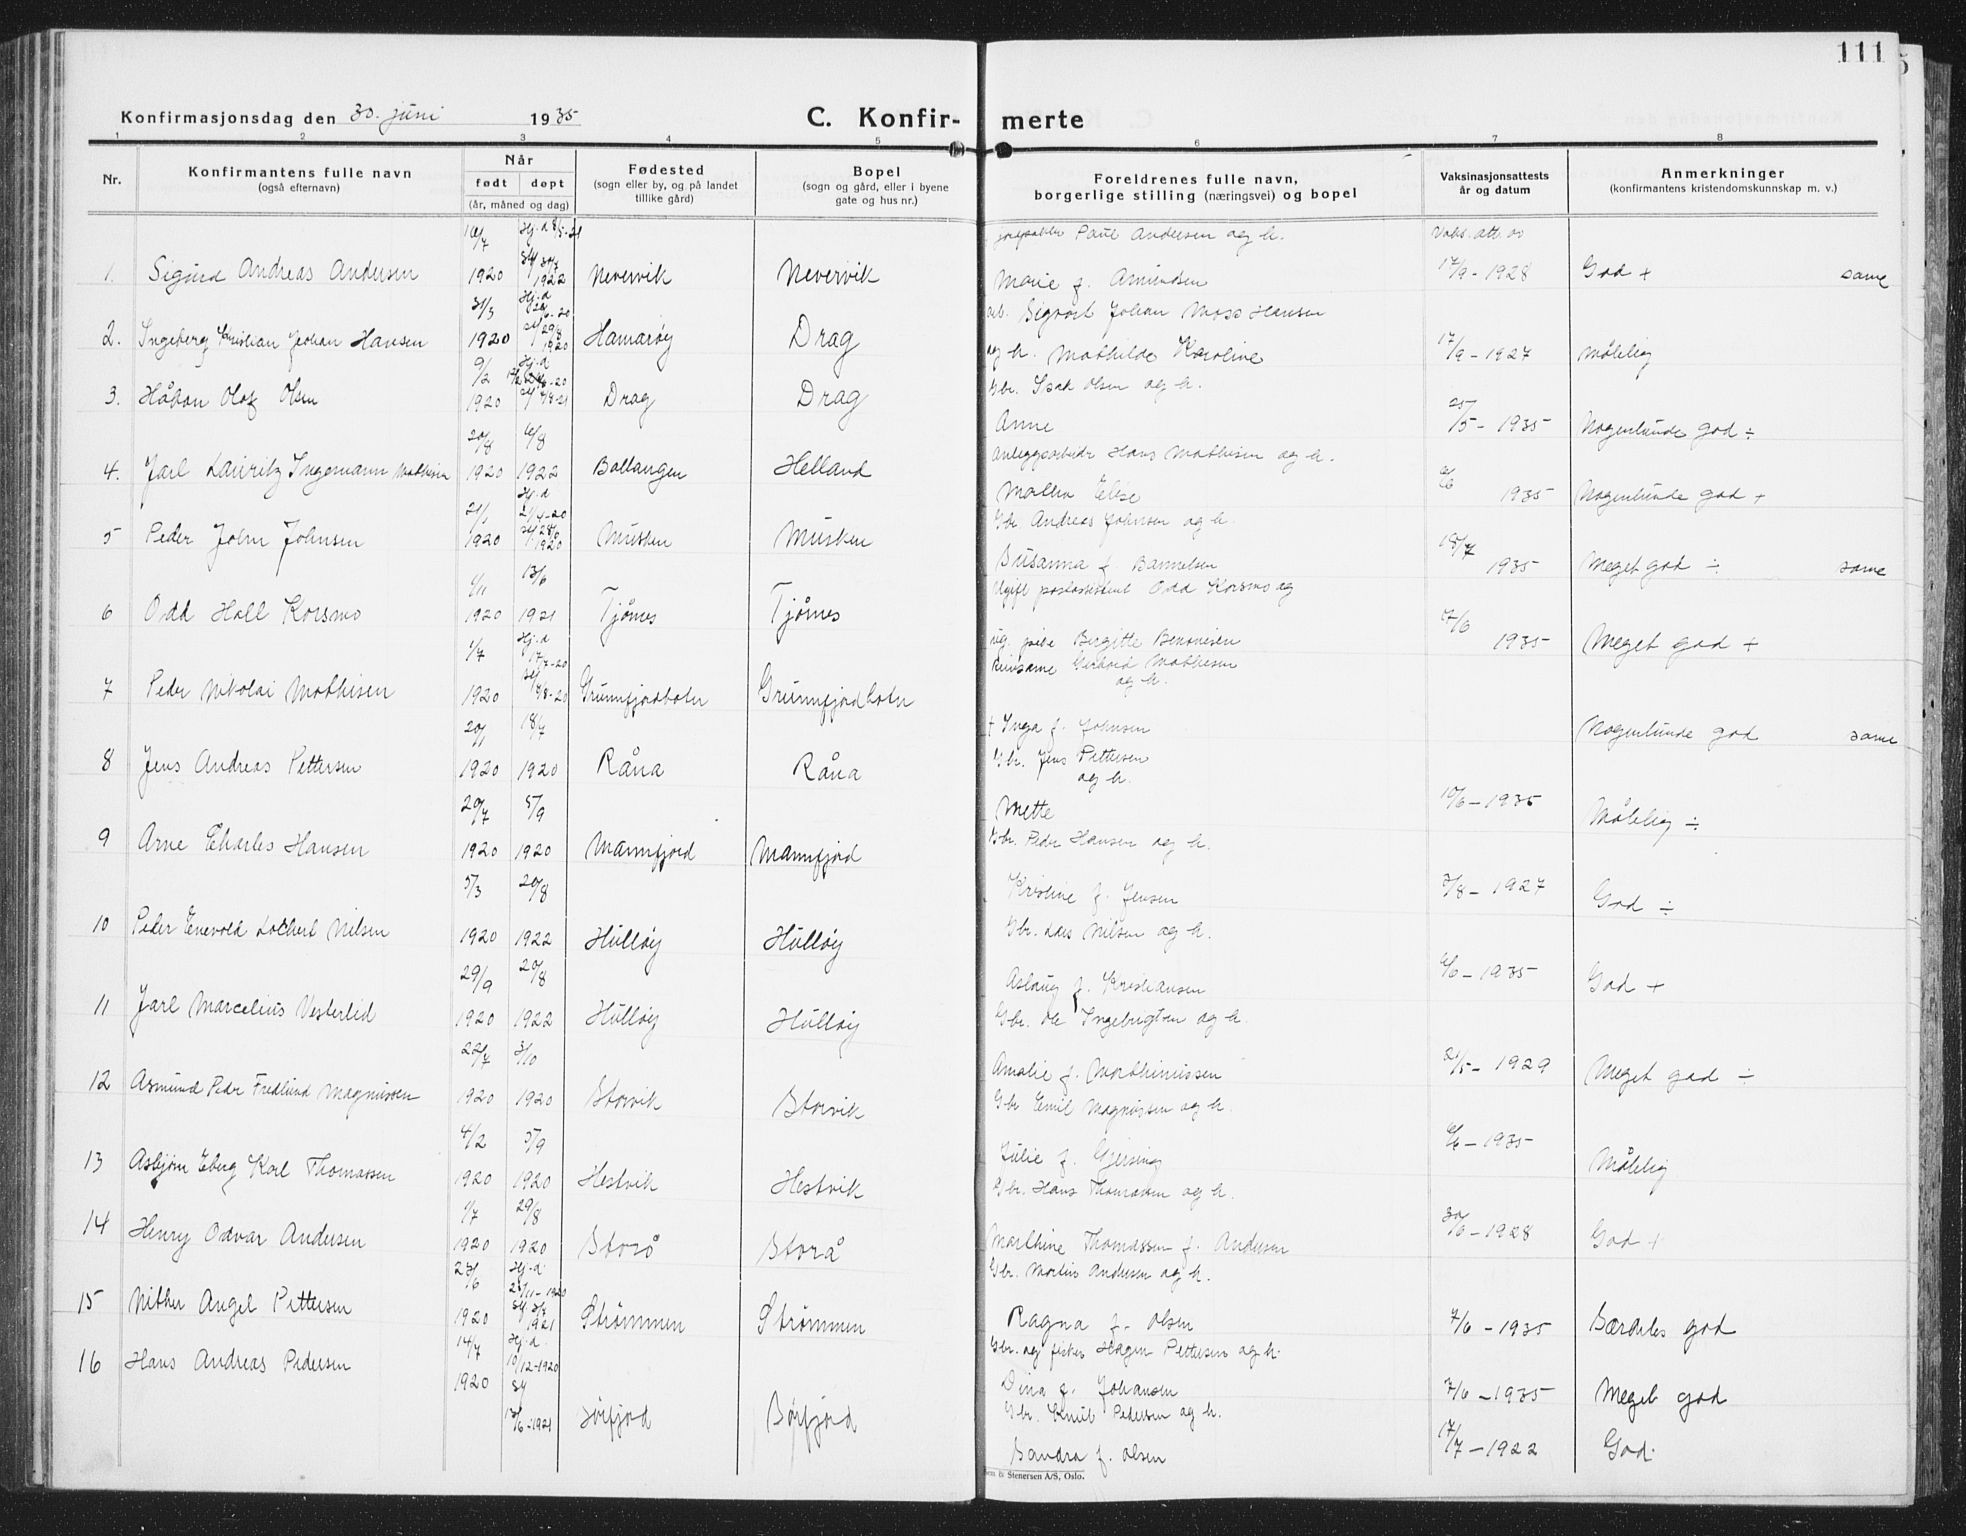 111
Konfirmasjonsdag den 30. juni 1935
C. Konfir- merte
1 2 3 4 5 6 7 8
Nr.
Konfirmantens fulle navn
(også efternavn)
Når
født døpt
(år, måned og dag)
Fødested
(sogn eller by, og på landet
tillike gård)
Bopel
(sogn og gård, eller i byene
gate og hus nr.)
Foreldrenes fulle navn,
borgerlige stilling (næringsvei) og bopel
Vaksinasjonsattests
år og datum
Anmerkninger
(konfirmantens kristendomskunnskap m. v.)
16/7 Hj. d 8/5-21 Paul Andersen og h. Vaks. att. av
1. Sigurd Andreas Andersen 1920 1922 Nevervik Nevervik Marie f. Amundsen 17/9-1928 God + same
31/3 Hj. d Sigvart Johan Moss Hansen
2. Ingeberg Kristian Johan Hansen 1920 1920 Hamarøy Drag og h. Mathilde Karoline 17/9-1927 Målelig
9/2 Hj. d Gbr. Isak Olsen og h.
3. Håkon Olaf Olsen 1920 Drag Drag Anne 25/5-1935 Nogenlunde god ÷
20/8 6/8 Anleggsarbeidr Hans Mathisen og h.
4. Jarl Lauritz Ingemann Mathisen 1920 1922 Ballangen Helland Malla Elise 1935 Nogenlunde god +
21/1 Hj. d 21/4-20 Gbr. Andreas Johnsen og h.
5 Peder John Johnsen 1920 1920 Musken Musken Susanna f. 18/7 1935 Meget god ÷ same
1/11 13/6 Ugift postassistent Odd Korsmo og
6 Odd Hall Korsmo 1920 1921 Tjårnes Tjårnes ug. pike Birgitte Benonisen 17/6 1935 Meget god +
1/7 Hj. d 17/7-20 Reinsame Mathisen og h.
7 Peder Nikolai Mathisen 1920 /8-20 Grunnfjordbotn Grunnfjordbotn + Inga f. Johnsen Nogenlunde god same
20/1 18/7 Gbr. Jens Pettersen og h.
8 Jens Andreas Pettersen 1920 1920 Råna Råna Mette 10/6-1935 Målelig ÷
20/7 5/9 Gbr. Peder Hansen og h.
9 Arne Charles Hansen 1920 1920 Mannfjord Mannfjord Kristine f. Jensen /8-1927 God ÷
5/3 20/8 Gbr. Lars Nilsen og h.
10 Peder Enevold Lockert Nilsen 1920 1922 Hulløy Hulløy Aslaug f. Kristiansen 6/6-1935 God +
29/9 20/8 Gbr. Ole Ingebrigtsen og h.
11 Jarl Marcelius Vesterlid 1920 1922 Hulløy Hulløy Amalie f. Mathinussen 21/5-1929 Meget god ÷
22/7 3/10 Gbr Emil Magnussen og h.
12 Asmund Peder Fredlund Magnussen 1920 1920 Storvik Storvik Julie f. Gjersing 6/6-1935 Målelig
4/2 5/9 Gbr. Hans Thomassen og h.
13 Asbjørn Eberg Karl Thomassen 1920 1920 Hestvik Hestvik Marthine Thomassen f. Andersen 30/6-1928 God +
1/7 29/8 Gbr. Martin Andersen og h.
14 Henry Odvar Andersen 1920 1920 Storå Storå Ragna f. Olsen 7/6-1935 Særdeles god
23/6 Hj. d. 23/11-1920 Gbr. og fisker Hagen Pettersen og h.
15 Angel Pettersen 1920 1921 Strømmen Strømmen Dina f. Johansen 7/6-1935 Meget god
14/7 Hj. d. 10/12-1920 Gbr. Knut Pedersen og h.
16 Hans Andreas Pedersen 1920 /6-1921 Sørfjord Sørfjord Sandra f. Olsen 17/7-1922 God.
& Stenersen A/S, Oslo.